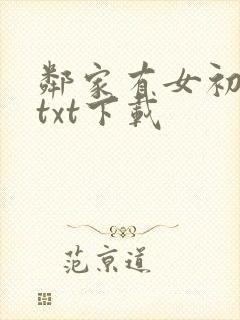 鄰家有女初
txt下載
范京道